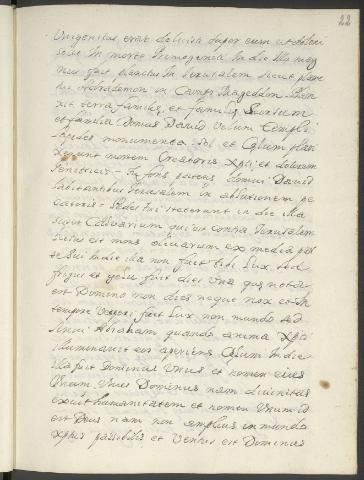 22
Unigenitus erat doluit super eum ut doleri
solet in morte Primogenia In die illa mag
nus fuit planctus in Jerusalem sicut planc
tus Adadremon in Campo Mageddon Plan
xit terra familiæ, et familiæ seorsum
et familia Domus David Velum Templi
lapides monumenta. Sol et Cælum plan
xerunt mortem Creatoris Xpti et dolorem
Genetricis - In fons patens domui David
habitantibus Jerusalem in ablutionem pe
catoris - Pedes tui steterunt in die illa
super Calvarium qui est contra Jerusalem
scitus est mons olivarum ex media par
te sui In die illa non fuit tibi Lux sed
frigus et gelu fuit dies Una quæ nota
est Domino non dies neque nox et in
tempore Vesperi fuit Lux non mundo sed
sinui Abraham quando anima Xpti
illuminavit eos aperiens Cælum In die
illa fuit Dominus Unus et nomen eius
Unum Unus Dominus nam divinitas
exuit humanitatem et nomen Unum id
est Deus nam non amplius in mundo
Xptus passibilis et Ventus est Dominus